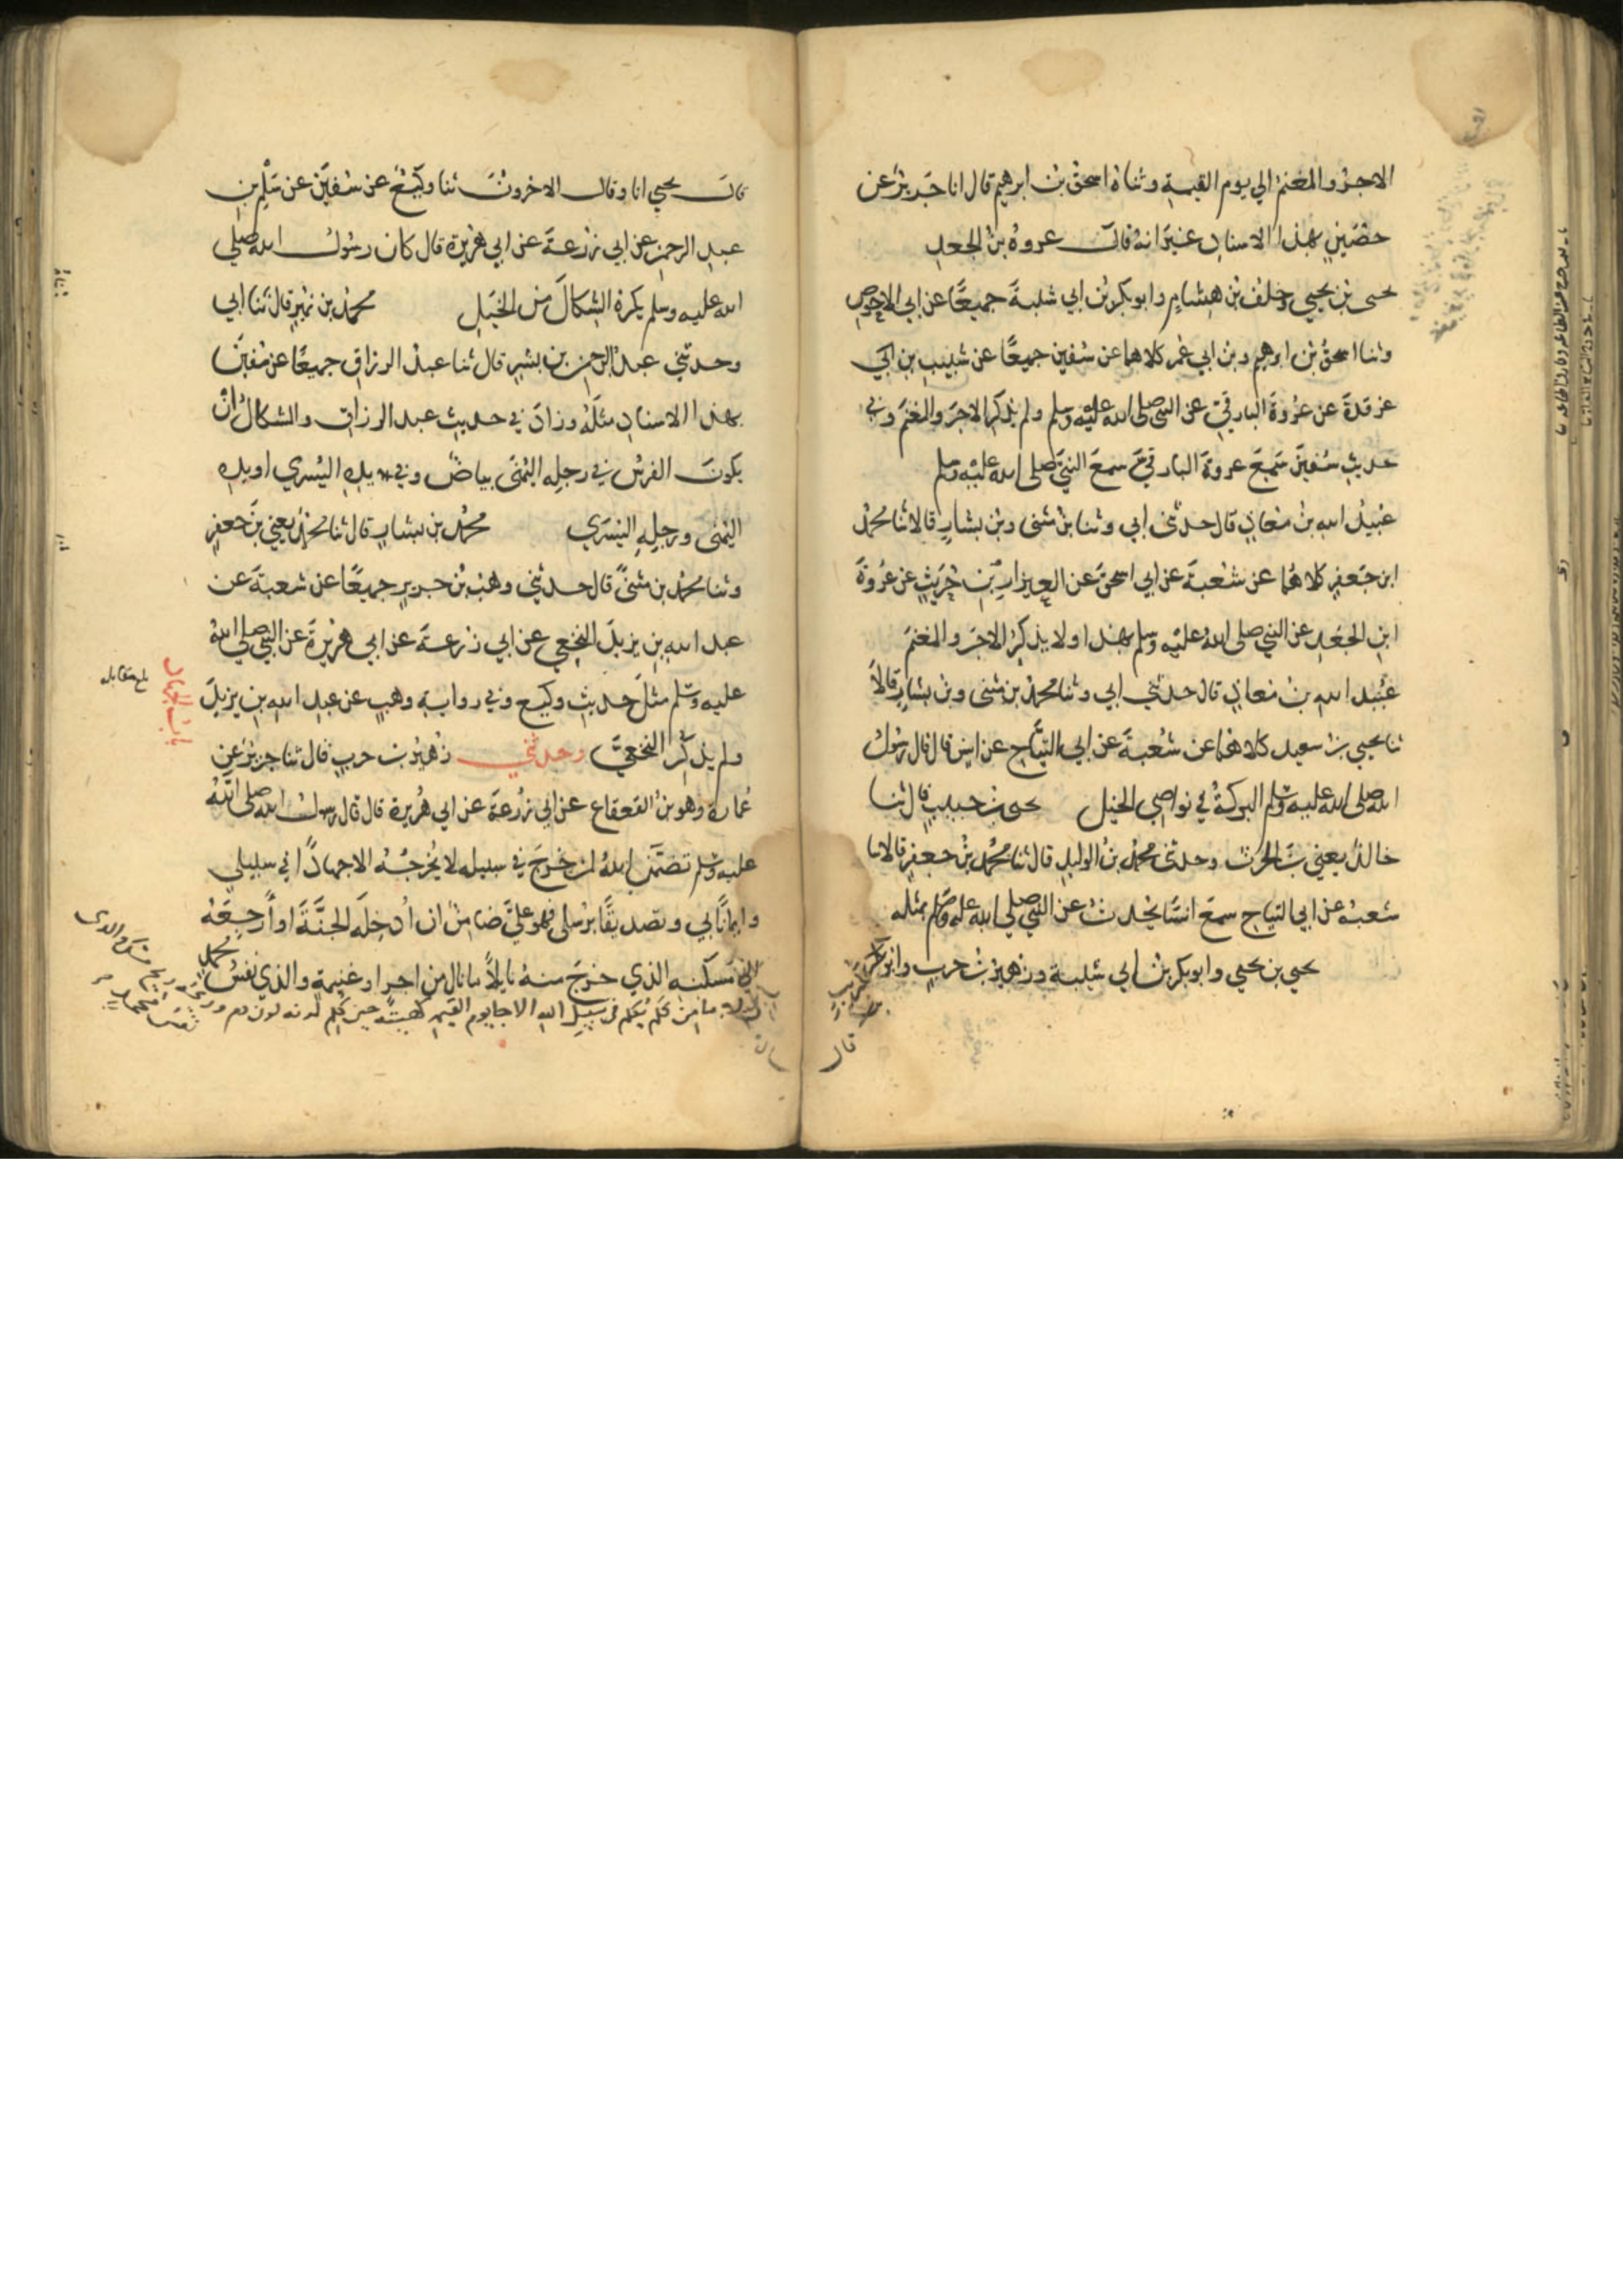 الاجرُ والمغنمُ الي يوم القيمةِ وثناهُ اسحقُ بنُ ابرهيم قال انا جَريرٌ عن
حُصَينٍ بهذا الاسنادِ غيرَ انهُ قالَ عروةُ بنُ الجعدِ
يحيى بن يحيي وخلفُ بن هِشامٍ وابو بكر بن ابي شيبةَ جميعًا عن ابي الاحوصِ
وثنا اسحقُ بن ابرهيم وبن ابي عُمر كلاهما عن سُفين جميعًا عن شَبيبِ بن
غرقدةَ عن عُروةَ البارقيّ عن النبي صلى الله عليه وسلم ولم يذكر الاجرَ والمغنمَ وفي
حديثِ سُفينَ سَمِعَ عروةَ البارقيَّ سمعَ النبيَّ صلى الله عليه وسلم
عُبيدُ الله بنُ مُعاذٍ قال حدثني ابي وثنا بنُ مثنى وبنُ بشارٍ قالا ثنا محمدُ
ابن جَعفرٍ كلاهُما عن شعْبةَ عن ابي اسحقَ عن العيزارِ بن حُرَيثٍ عن عُروةَ
ابنِ الجَعْدِ عن النبي صلى اللهُ عليه وسلم بهذا ولا يذكرُ الاجرَ والمغنمَ
عُبَيد الله بنُ مُعاذٍ قال حدثني ابي وثنا محمدُ بن مثنى وبنُ بشارٍ قالاَ
ثنا يحيي بنُ سعيد كلاهُما عن شُعبةَ عن ابي التيَّاحِ عن انسٍ قال قال رسُولُ
الله صلى الله عليه وسلم البركةُ في نواصي الخيل يحيى بن حبيبٍ قال ثنا
خالدٌ يعني بنَ الحرث وحدثني محمدُ بنُ الوليدِ قال ثنا محُمدُ بنُ جعفرٍ قالا نا
شعبةُ عن ابي التياحِ سمعَ انسًا يُحدثُ عن النبي صلى الله عليه وسلم بمثله
يحيى بن يحيي وابو بكر بنُ ابي شيبة وزهيرُ بنُ حربٍ وابو كُرَيبٍ
قال
قالَ يحيي انا وقال الاخرونَ ثنا وَكيْعٌ عن سُفيَن عن سَلْمِ بن
عبدِ الرحمن عن ابي زُرعةَ عن ابي هُريرة قال كان رسُولُ الله صلى
الله عليه وسلم يكرهُ الشِكالَ من الخَيلِ محمدُ بن نُميرٍ قال ثنا ابي
وحدثني عبدُ الرحمن بن بشرٍ قال ثنا عبدُ الرزاقِ جميعًا عن سُفيَن
بهذا الاسنادِ مثلَهُ وزادَ في حديثِ عبد الرزاقِ والشكالُ انْ
يكونَ الفرسُ في رجلِهِ اليُمْنَى بياضٌ وفي يدِهِ اليُسري او يدِهِ
اليُمْنى ورجلِهِ اليُسَري محمدُ بن بشارٍ قال ثنا محمدٌ يعني بنَ جعفرٍ
وثنا محمدُ بن مثنىًّ قال حدثني وهبُ بنُ جريرٍ جميعًا عن شعبةَ عن
عبد الله بن يزيدَ النخعي عن ابي زرعةَ عن ابي هُريرةَ عن النبي صلى اللهُ
عليه وسلم مثلَ حديثِ وكيع وفي روايةِ وهبٍ عن عبد الله بن يزيدَ
ولم يذكر النخعيَّ وحدثني زُهيرُ بن حربٍ قال ثنا جريرٌ عن
عُمارة وهو بنُ القعقاع عن ابي زُرعةَ عن ابي هُريرة قال قال رسولُ الله صلى اللهُ
عليه وسلم تضمَّن اللهُ لمن خرجَ في سبيله لا يُخرجُهُ الا جهادًا في سبيلي
وايمانًا بي وتصديقًا برُسلي فهو عليَّ ضامِنٌ ان اُدخِلَه الجنَّةَ او اَرجِعَهُ
الي مَسكنِه الذي خرجَ منهُ نايلاً ما نال من اجرٍ او غنيمةٍ والذي نفسُ محمد
بيده ما من كَلْمٍ يُكلَم في سبيل الله الا جا يوم القيمه كهيئته حين كُلِم لونه لون دم وريحه ريح مسك والذي
نفسُ محمد
باب الجهاد
بلغ مقابله